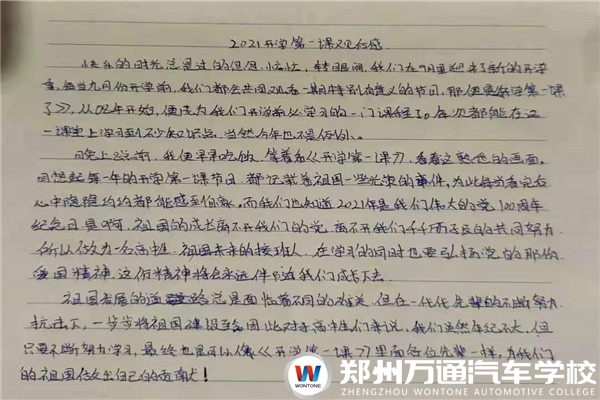 2021开学第一课观后感
快乐的时光总是过的但是匆忙, 转眼间, 我们在9月里迎来了新的开学
季, 每当九月份开学前, 我们都会共同观看一期特别有意义的节目, 那便是开学第一课
了》, 从08年开始, 便成为我们开学前必学习的一门课程了。每次都能在这
一课堂上学习到不少知识点, 当然今年也不是例外。
晚上8点前, 我便早早吃饭, 等着看《开学第一课》, 看着这熟悉的画面,
回想起每一年的开学第一课节目, 都记载着祖国一些光荣的事件, 为此每当看完后
心中隐隐约约都能感到自家, 而我们也知道2021年是我们伟大的党100周年
纪念日, 是啊, 祖国的成长离不开我们的党, 离不开我们千千万万子民的共同努力
所以做为一名高中生, 祖国未来的接班人, 在学习的同时也要弘扬党的那份
爱国精神, 这份精神将会永远伴随在我们成长下去
祖国发展的道路总是面临着不同的难关, 但在一代代先辈的不断努力
抗击下, 一步步将祖国建设至今, 因此对于高中生们来说, 我们虽然年纪不大, 但
只要不断努力学习, 最终也是可以像《开学第一课》里面各位先辈一样, 为我们
的祖国做出自己的贡献!
WONTONE
郑州万通汽车学校
ZHENGZHOU WONTONE AUTOMOTIVE COLLEGE